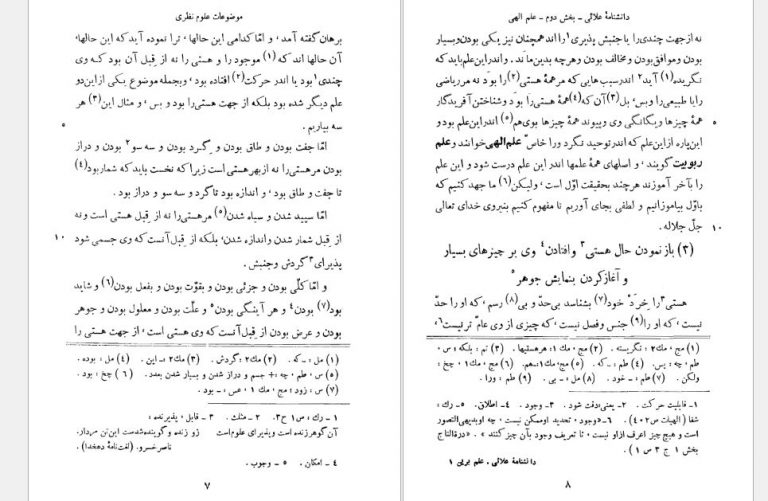 موضوعات علوم نظری
برهان گفته آمد، و امّا کدامی این حالها، ترا نموده آید که این حالها،
آن حالها اند که (۱) موجود را و هستی را نه از قِبل آن بود که وی
چندی۱ بود یا اندر حرکت (۲) افتاده بود، و بجمله موضوع یکی ازاین دو
علم دیگر شده بود بلکه از جهت هستی را بود و بس، و مثال این (۳) هر
سه بیاریم.
۵
امّا جفت بودن و طاق بودن و گِرد بودن و سه سو۲ بودن و دراز
بودن مرهستی را نه ازبهر هستی است زیرا که نخست باید که شمار بود (۴)
تا جفت و طاق بود، و اندازه بود تا گرد و سه سو و دراز بود.
امّا سپید شدن و سیاه شدن (۵) مرهستی را نه از قِبل هستی است و نه
از قِبل شمار شدن و اندازه شدن، بلکه از قِبل آنست که وی جسمی شود
۱۰
پذیرای۳ گردش و جنبش.
و امّا کلّی بودن و جزئی بودن و بقوّت بودن و بفعل بودن (۶) و شاید
بود (۷) بودن۴ و هر آینگی بودن۵ و علّت بودن و معلول بودن و جوهر
بودن و عرض بودن از قِبل آنست که وی هستی است، از جهت هستی را
(۱) مل: ـ که. (۲) مك ۲: گردش. (۳) مك ۲: ـ این. (۴) مل: بوده.
(۵) س، طم، چه: + جسم و دراز شدن و بسیار شدن بعدد. (۶) چخ: بود.
(۷) س: زود؛ مج، مك ۱، عس، ـ بود.
۱ ـ رك: ص ۱ ح ۳. ۲ ـ مثلث. ۳ ـ قابل، پذیرنده:
آن گوهر زنده است و پذیرای علوم است زو زنده و گوینده شدست این تن مردار.
ناصر خسرو. (لغت نامهٔ دهخدا).
۴ ـ امکان. ۵ ـ وجوب.
۷
دانشنامهٔ علائی ـ بخش دوم ـ علم الهی
نه از جهت چندی را یا جنبش پذیری۱ را اند همچنان نیز یکی بودن و بسیار
بودن و موافق بودن و مخالف بودن و هر چه بدین ماند. و اندر این علم باید که
نگریده (۱) آید۲ اندر سبب هایی که مر همهٔ هستی (۲) را بوَد نه مر ریاضی
را یا طبیعی را و بس، بل (۳) آن که (۴) همهٔ هستی را بوَد و شناختن آفریدگار
همهٔ چیزها و یگانگی وی و پیوند همهٔ چیزها بوی هم (۵) اندر این علم بود و
۵
این پاره از این علم که اندر توحید نگرد ورا خاصّ علم الهی خوانند و علم
ربوبیت گویند، و اصلهای همهٔ علمها اندر این علم درست شود و این علم
را بآخر آموزند هر چند بحقیقت اوّل است، ولیکن (۶) ما جهد کنیم که
باوّل بیاموزانیم و لطفی بجای آوریم تا مفهوم کنیم بنیروی خدای تعالی
جلّ جلاله.
۱۰
(۳) باز نمودن حال هستی۳ وافتادن۴ وی بر چیزهای بسیار
و آغاز کردن بنمایش جوهر۵
هستی۳ را خِرَد خود (۷) بشناسد بی حدّ و بی (۸) رسم، که او را حدّ
نیست، که او را (۹) جنس و فصل نیست، که چیزی از وی عامّ تر نیست۶،
(۱) مج، مك ۲: نگریسته. (۲) مج، مك ۱: هر هستیها. (۳) تم: بلکه؛ س،
طم، چه: پس. (۴) طم: ـ که. (۵) مك ۱: ـ هم. (۶) مج، مك ۱، چخ:
ولکن. (۷) طم: ـ خود. (۸) مل: ـ بی. (۹) طم: ورا.
۱ ـ قابلیت حرکت. ۲ ـ یعنی دقت شود. ۳ ـ وجود. ۴ ـ اطلاق. ۵ ـ رك:
شفا (الهیات ص ۴۰۲). ۶ ـ «وجود، تحدید او ممکن نیست، چه او بدیهی التصور
است و هیچ چیز اعرف از او نیست، تا تعریف وجود بآن چیز کنند.» «درة التاج
بخش ۱ ج ۳ ص ۱).
دانشنامهٔ علائی. علم برین ۱
۸